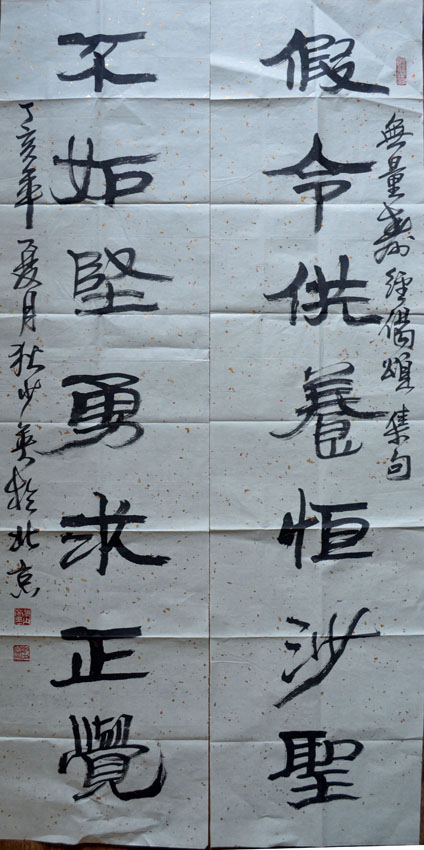 無量壽經偈頌集句
假令供養恒沙聖
不如堅勇求正覺
丁亥年夏月狄少英於北京